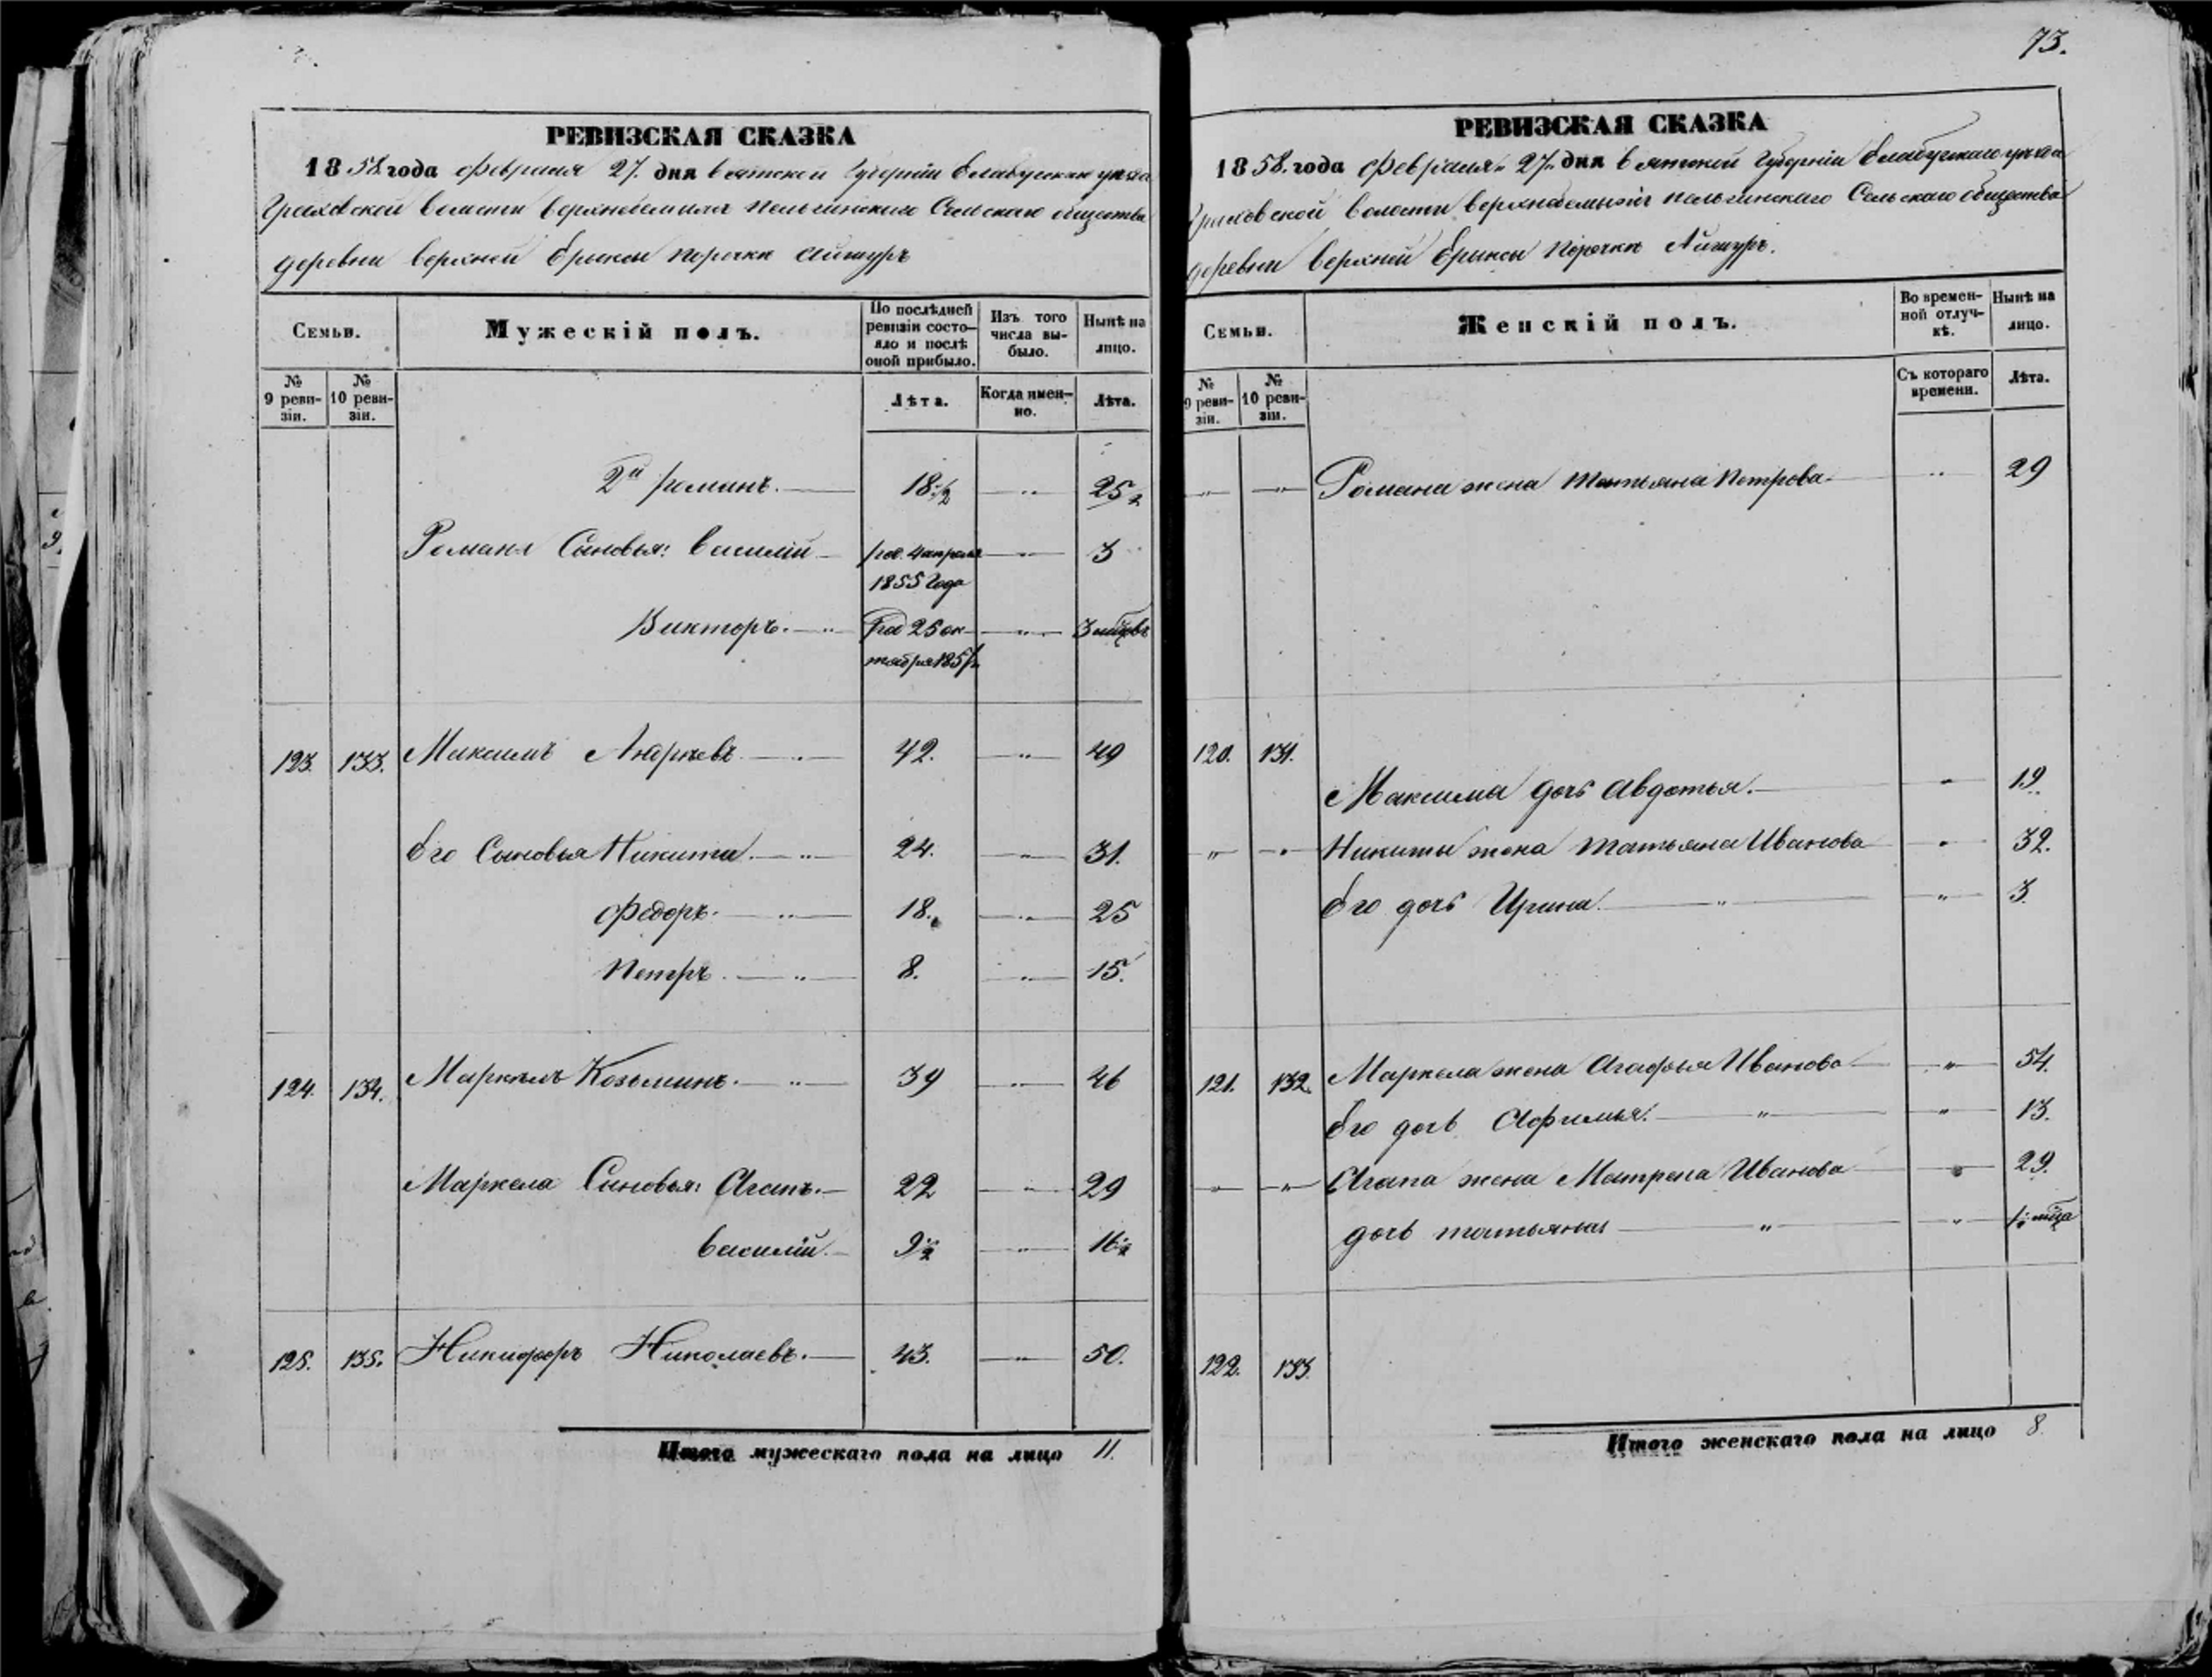 73.
РЕВИЗСКАЯ СКАЗКА
1858 года Февраля 27. дня Вятской Губерніи Елабужскаго уѣзда
Граховской волости Сельскаго общества
деревни верхней Ерыксы по рѣчкѣ Айшуръ
Семьи.
Мужескій полъ.
По послѣдней ревизіи состояло и послѣ оной прибыло.
Изъ того числа выбыло.
Нынѣ на лицо.
№ 9 ревизіи.
№ 10 ревизіи.
Лѣта.
Когда именно.
Лѣта.
2й Романъ. 18 1/2 25 1/2
Романа Сыновья: Василій 3
род. 4 апреля
1855 Года
Викторъ. 3 мѣсяцевъ
Род 25 ок-
тября 1857
123. 133. Максимъ Андреевъ 42. 49
Его Сыновья Никита. 24. 31.
Федоръ. 18. 25
Петръ. 8. 15.
124. 134. Маркелъ Козьминъ. 39 46
Маркела Сыновья: Агапъ. 22 29
Василій. 9 1/2 16 1/2
125. 135. Никифоръ Николаевъ. 43. 50.
Итого мужескаго пола на лицо 11.
РЕВИЗСКАЯ СКАЗКА
1858. года Февраля 27. дня Вятской Губерніи Елабужскаго уѣзда
Граховской волости Сельскаго общества
деревни верхней Ерыксы по рѣчкѣ Айшуръ.
Семьи.
Женскій полъ.
Во временной отлучкѣ.
Нынѣ на лицо.
№ 9 ревизіи.
№ 10 ревизіи.
Съ котораго времени.
Лѣта.
Романа жена Татьяна Петрова 29
120. 131.
Максима дочь Авдотья. 19.
Никиты жена Татьяна Иванова 32.
Его дочь Ирина. 3.
121. 132. Маркела жена Агафья Иванова 54.
Его дочь Афимья. 13.
Агапа жена Матрена Иванова 29.
дочь Татьяна
122. 133.
Итого женскаго пола на лицо 8.